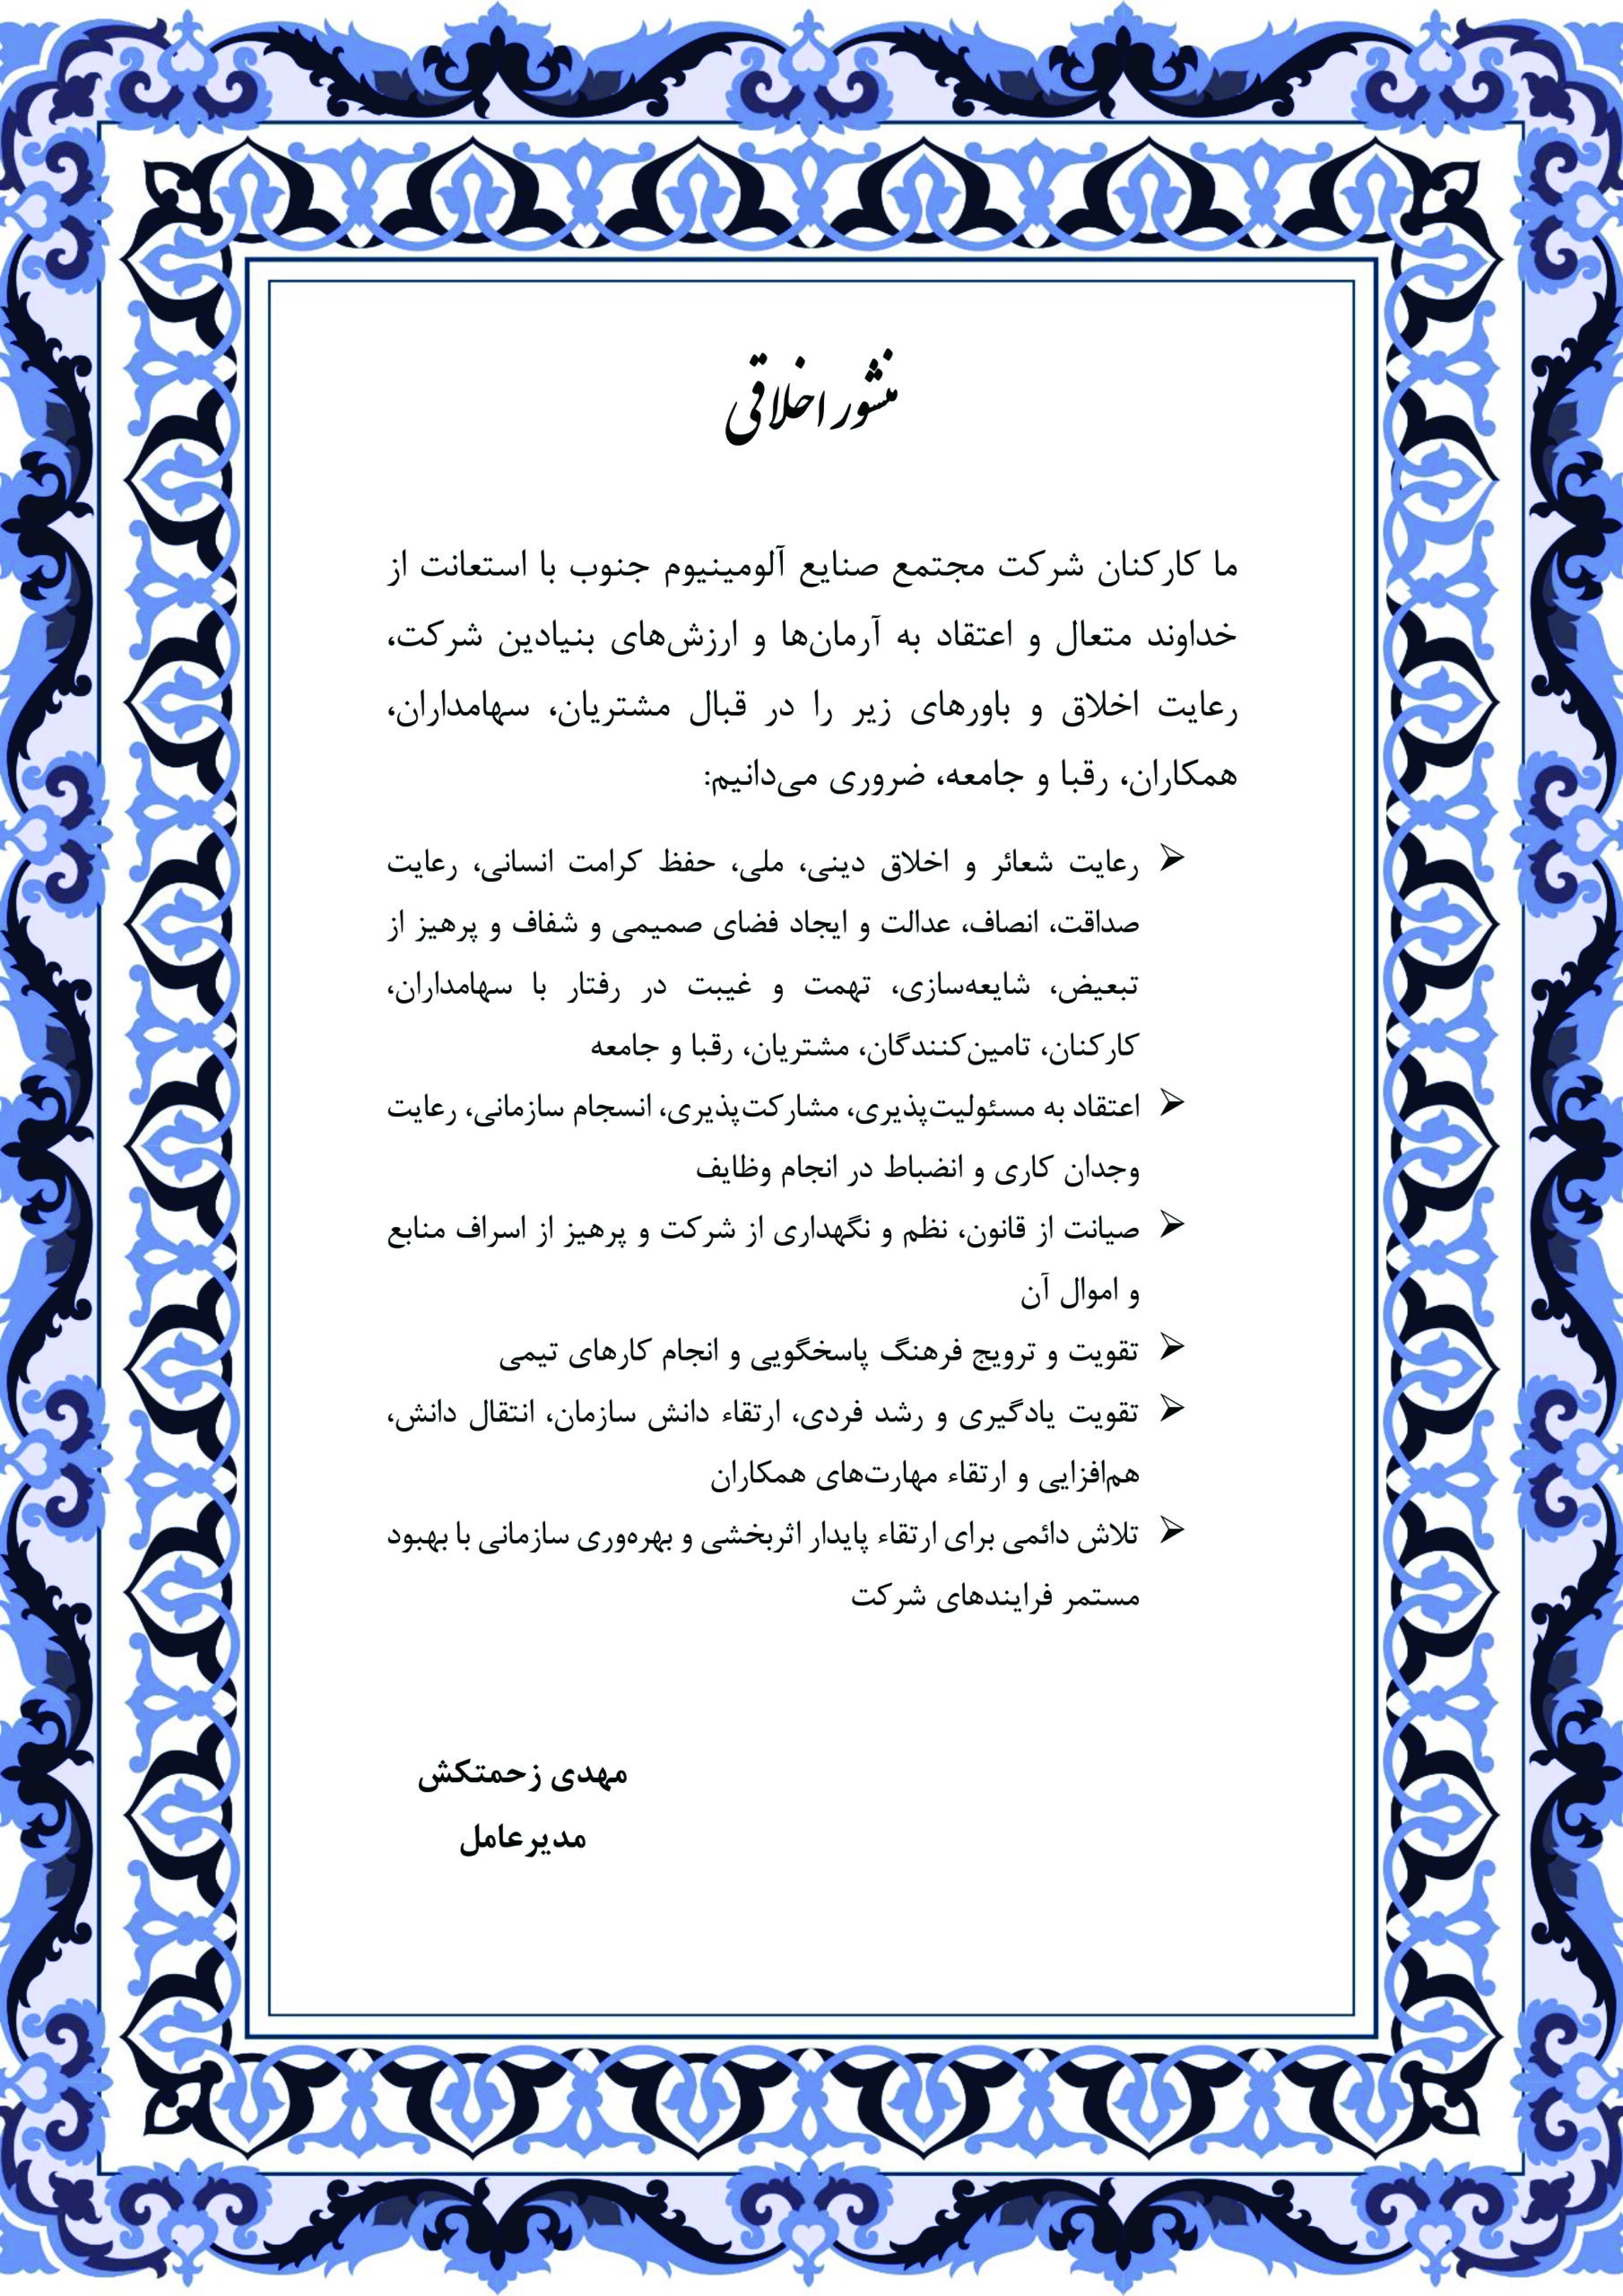 منشور اخلاقی
ما کارکنان شرکت مجتمع صنایع آلومینیوم جنوب با استعانت از
خداوند متعال و اعتقاد به آرمان‌ها و ارزش‌های بنیادین شرکت،
رعایت اخلاق و باورهای زیر را در قبال مشتریان، سهامداران،
همکاران، رقبا و جامعه، ضروری می‌دانیم:
➢ رعایت شعائر و اخلاق دینی، ملی، حفظ کرامت انسانی، رعایت
صداقت، انصاف، عدالت و ایجاد فضای صمیمی و شفاف و پرهیز از
تبعیض، شایعه‌سازی، تهمت و غیبت در رفتار با سهامداران،
کارکنان، تامین‌کنندگان، مشتریان، رقبا و جامعه
➢ اعتقاد به مسئولیت‌پذیری، مشارکت‌پذیری، انسجام سازمانی، رعایت
وجدان کاری و انضباط در انجام وظایف
➢ صیانت از قانون، نظم و نگهداری از شرکت و پرهیز از اسراف منابع
و اموال آن
➢ تقویت و ترویج فرهنگ پاسخگویی و انجام کارهای تیمی
➢ تقویت یادگیری و رشد فردی، ارتقاء دانش سازمان، انتقال دانش،
هم‌افزایی و ارتقاء مهارت‌های همکاران
➢ تلاش دائمی برای ارتقاء پایدار اثربخشی و بهره‌وری سازمانی با بهبود
مستمر فرایندهای شرکت
مهدی زحمتکش
مدیرعامل